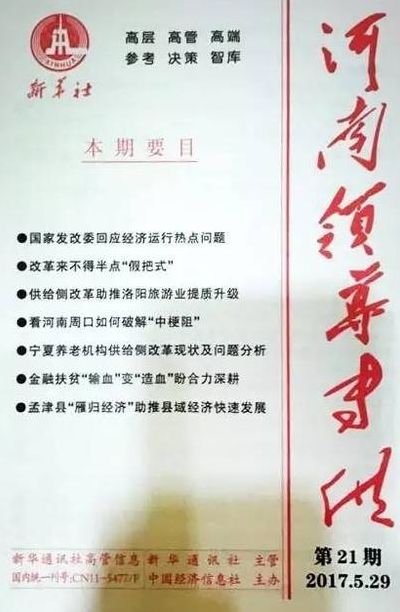 XINHUA
新华社
高层 高管 高端
参考 决策 智库
本期要目
●国家发改委回应经济运行热点问题
●改革来不得半点“假把式”
●供给侧改革助推洛阳旅游业提质升级
●看河南周口如何破解“中梗阻”
●宁夏养老机构供给侧改革现状及问题分析
●金融扶贫“输血”变“造血”盼合力深耕
●孟津县“雁归经济”助推县域经济快速发展
新华通讯社高管信息 新华通讯社 主管
国内统一刊号:CN11-5477/F 中国经济信息社 主办
河南领导专供
第21期
2017.5.29